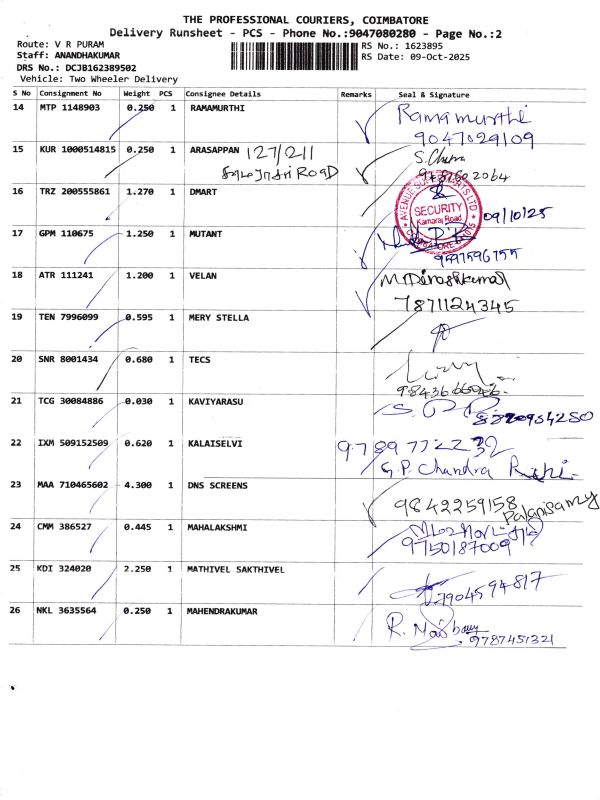 THE PROFESSIONAL COURIERS, COIMBATORE
Delivery Runsheet - PCS - Phone No.:9047080280 - Page No.:2
Route: V R PURAM
RS No.: 1623895
Staff: ANANDHAKUMAR
RS Date: 09-Oct-2025
DRS No.: DCJB162389502
Vehicle: Two Wheeler Delivery
S No Consignment No Weight PCS Consignee Details Remarks Seal & Signature
14 MTP 1148903 0.250 1 RAMAMURTHI Ramamurthi
9047029109
15 KUR 1000514815 0.250 1 ARASAPPAN 127/211 S.Chitra
ROAD
16 TRZ 200555861 1.270 1 DMART
SECURITY
Kamaraj Road
09/10/25
17 GPM 110675 1.250 1 MUTANT
9597596755
18 ATR 111241 1.200 1 VELAN M Dineshkumar
7871124345
19 TEN 7996099 0.595 1 MERY STELLA
20 SNR 8001434 0.680 1 TECS
21 TCG 30084886 0.030 1 KAVIYARASU
8820954280
22 IXM 509152509 0.620 1 KALAISELVI 9789772232
G.P. Chandra
23 MAA 710465602 4.300 1 DNS SCREENS 9842259158
Palanisamy
24 CMM 386527 0.445 1 MAHALAKSHMI
9750187009
25 KDI 324020 2.250 1 MATHIVEL SAKTHIVEL
7904594817
26 NKL 3635564 0.250 1 MAHENDRAKUMAR R.
9787451321